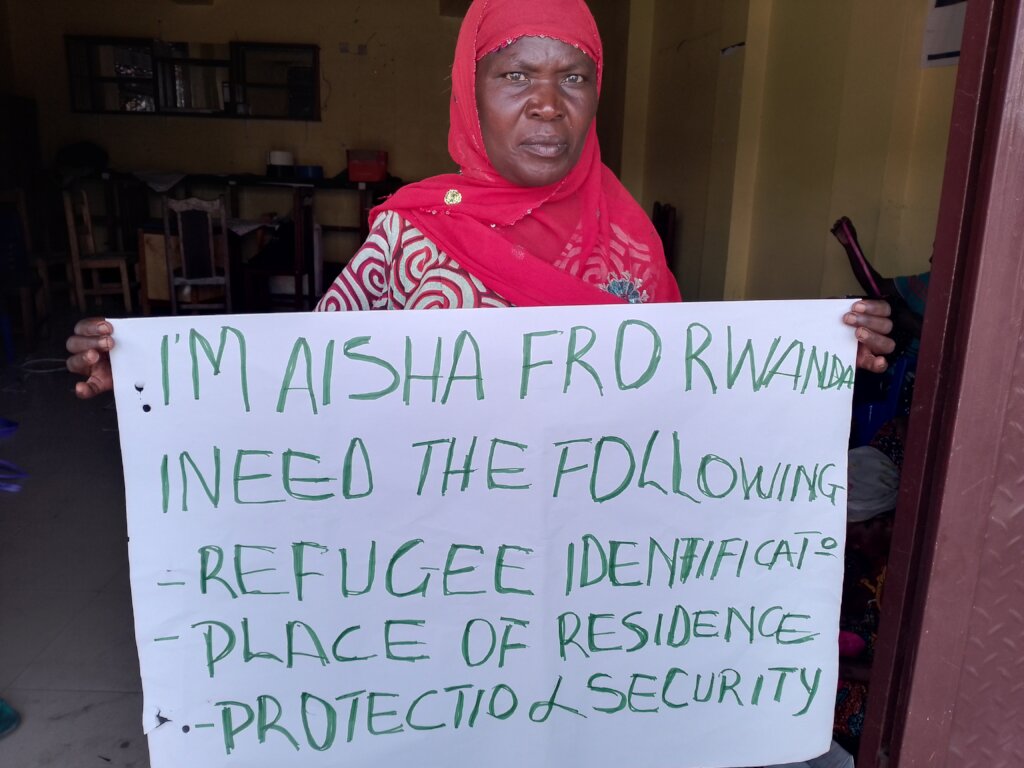 I'M AISHA FRO RWANDA
I NEED THE FOLLOWING
- REFUGEE IDENTIFICATO
- PLACE OF RESIDENCE
- PROTECTIO & SECURITY